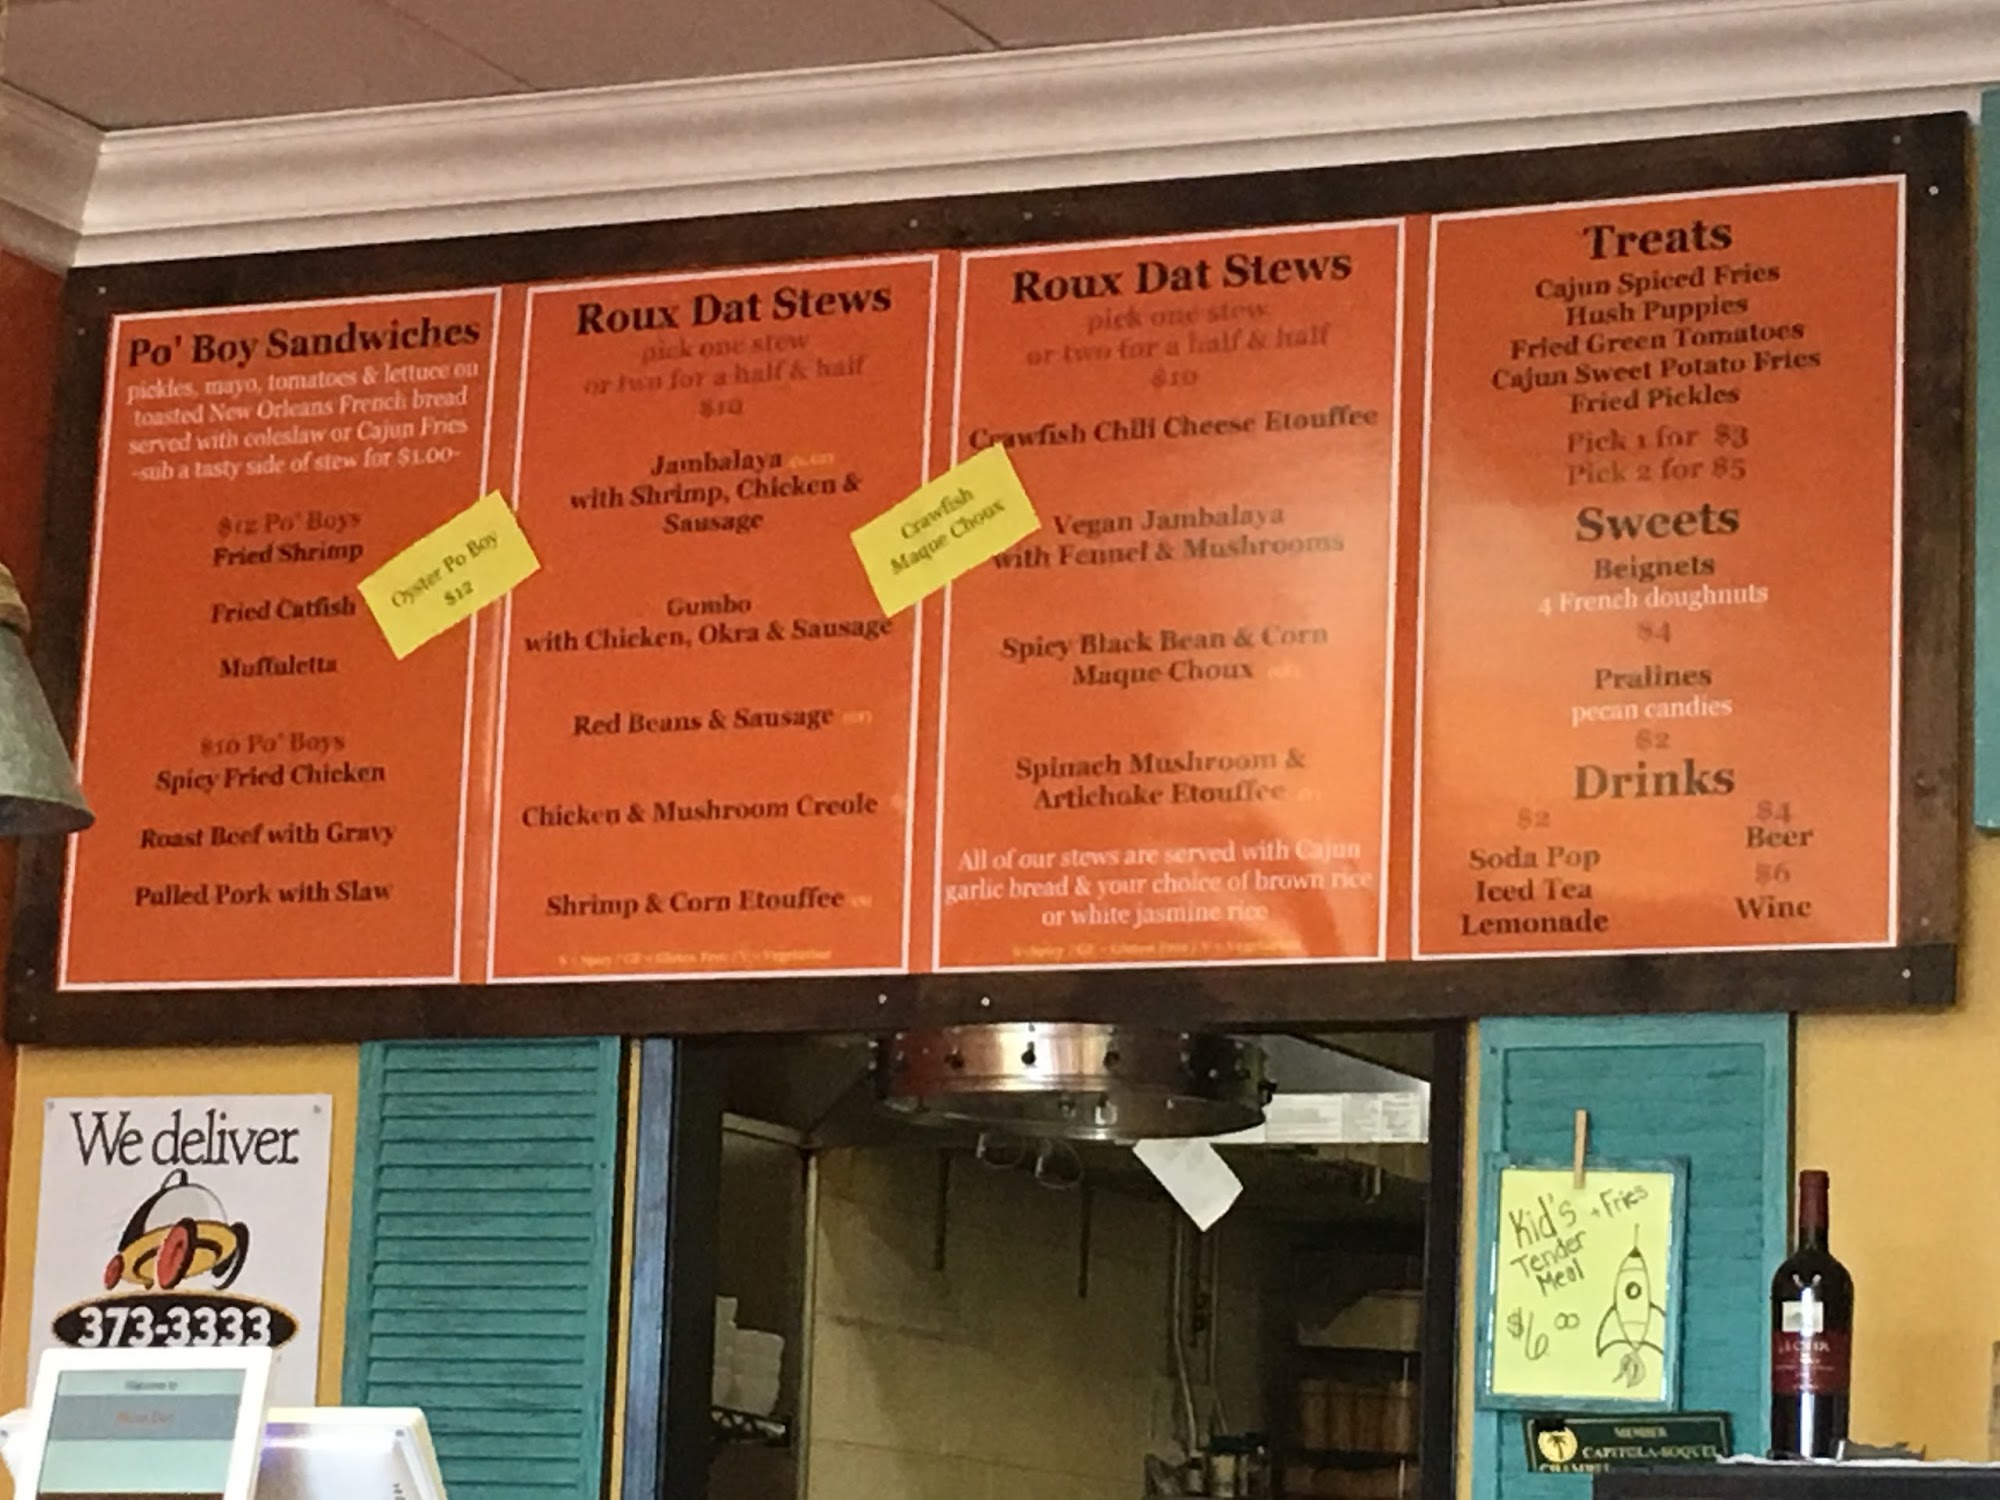 Po' Boy Sandwiches
pickles, mayo, tomatoes & lettuce on
toasted New Orleans French bread
served with coleslaw or Cajun Fries
-sub a tasty side of stew for $1.00-
$12 Po' Boys
Fried Shrimp
Fried Catfish
Muffuletta
$10 Po' Boys
Spicy Fried Chicken
Roast Beef with Gravy
Pulled Pork with Slaw
Oyster Po Boy
$12
Roux Dat Stews
pick one stew
or two for a half & half
$10
Jambalaya
with Shrimp, Chicken &
Sausage
Gumbo
with Chicken, Okra & Sausage
Red Beans & Sausage
Chicken & Mushroom Creole
Shrimp & Corn Etouffee
S = Spicy / GF = Gluten Free / V = Vegetarian
Crawfish
Maque Choux
Roux Dat Stews
pick one stew
or two for a half & half
$10
Crawfish Chili Cheese Etouffee
Vegan Jambalaya
with Fennel & Mushrooms
Spicy Black Bean & Corn
Maque Choux
Spinach Mushroom &
Artichoke Etouffee
All of our stews are served with Cajun
garlic bread & your choice of brown rice
or white jasmine rice
S = Spicy / GF = Gluten Free / V = Vegetarian
Treats
Cajun Spiced Fries
Hush Puppies
Fried Green Tomatoes
Cajun Sweet Potato Fries
Fried Pickles
Pick 1 for $3
Pick 2 for $5
Sweets
Beignets
4 French doughnuts
$4
Pralines
pecan candies
$2
Drinks
$2
Soda Pop
Iced Tea
Lemonade
$4
Beer
$6
Wine
We deliver
373-3333
Welcome to
Kid's + Fries
Tender
Meal
$6.00
MEMBER
CAPITOLA-SOQUEL
CHAMBER